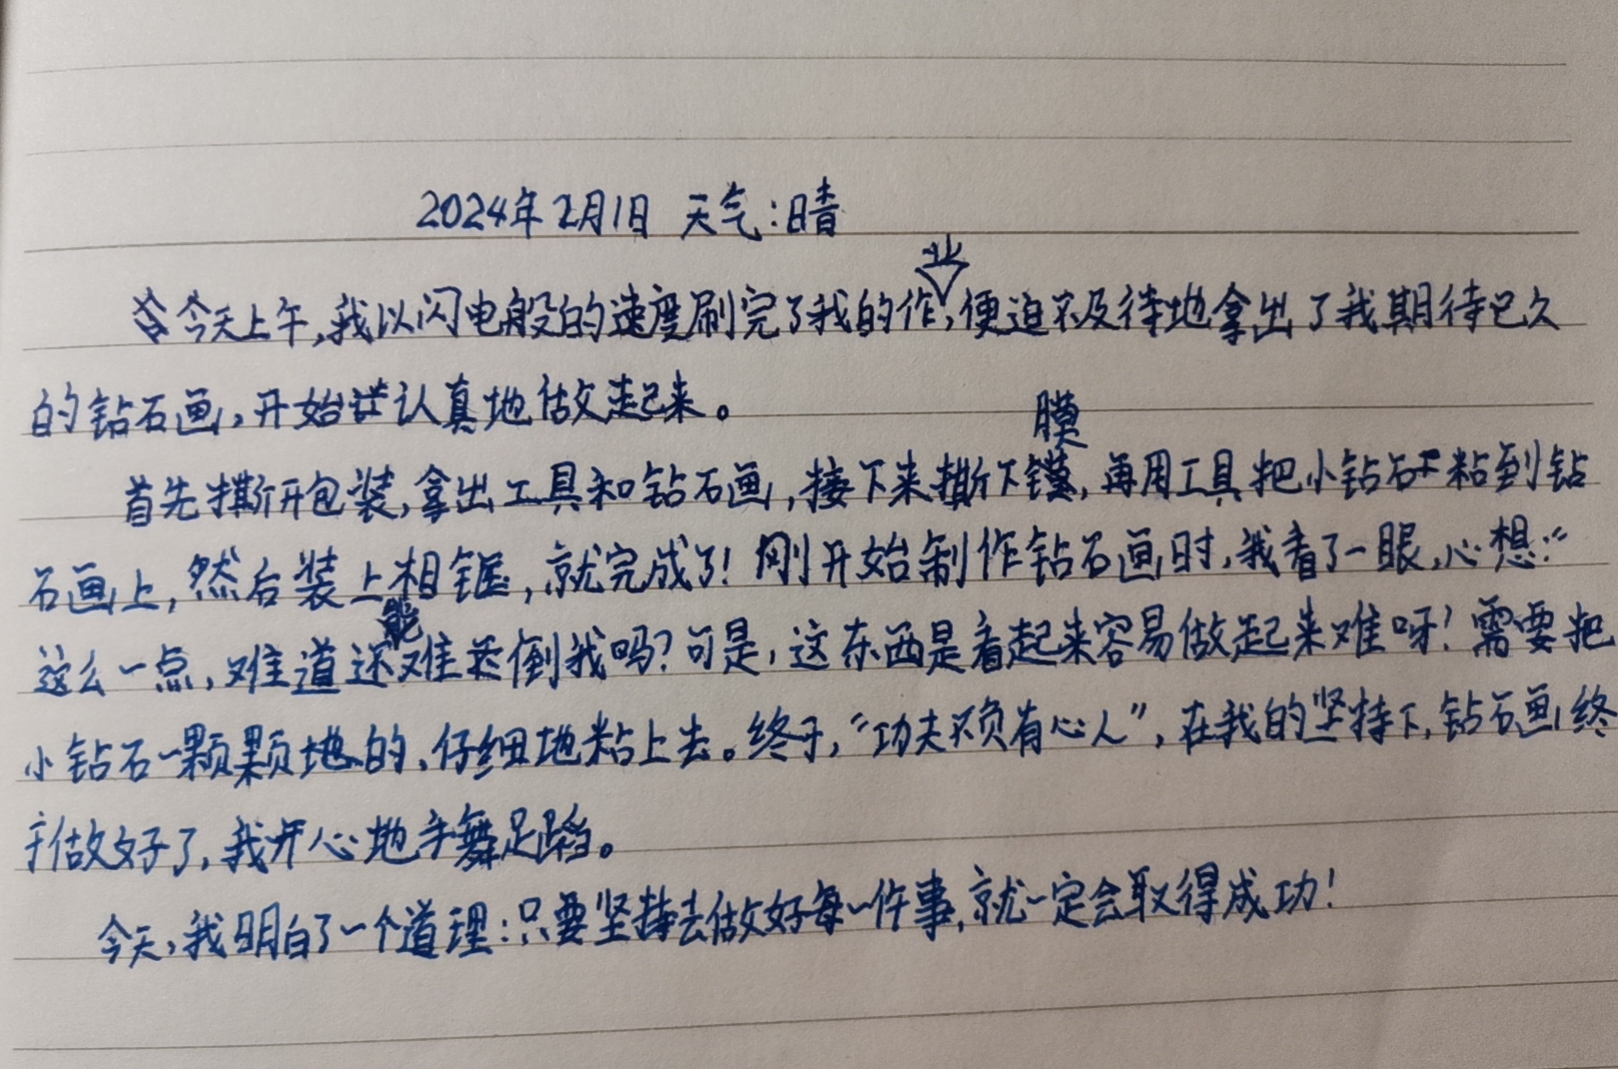 2024年2月1日 天气:晴
今天上午,我以闪电般的速度刷完了我的作业,便迫不及待地拿出了我期待已久
的钻石画,开始认真地做起来。
首先撕开包装,拿出工具和钻石画,接下来撕下膜,再用工具把小钻石粘到钻
石画上,然后装上相框,就完成了!刚开始制作钻石画时,我看了一眼,心想:“
这么一点,难道还能难倒我吗?可是,这东西是看起来容易做起来难呀!需要把
小钻石一颗颗地的,仔细地粘上去。终于,“功夫不负有心人”,在我的坚持下,钻石画终
于做好了,我开心地手舞足蹈。
今天,我明白了一个道理:只要坚持去做好每一件事,就一定会取得成功!